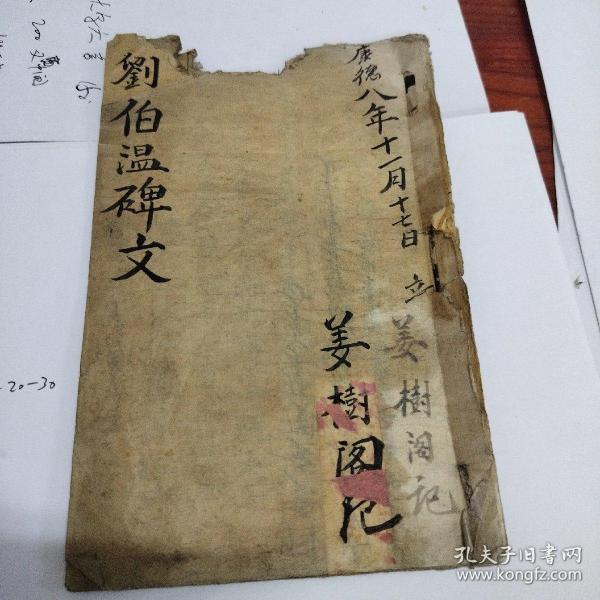 康德八年十一月十七日 立
姜樹閣記
姜樹閣記
劉伯温碑文
20-30
孔夫子旧书网
www.kongfz.com